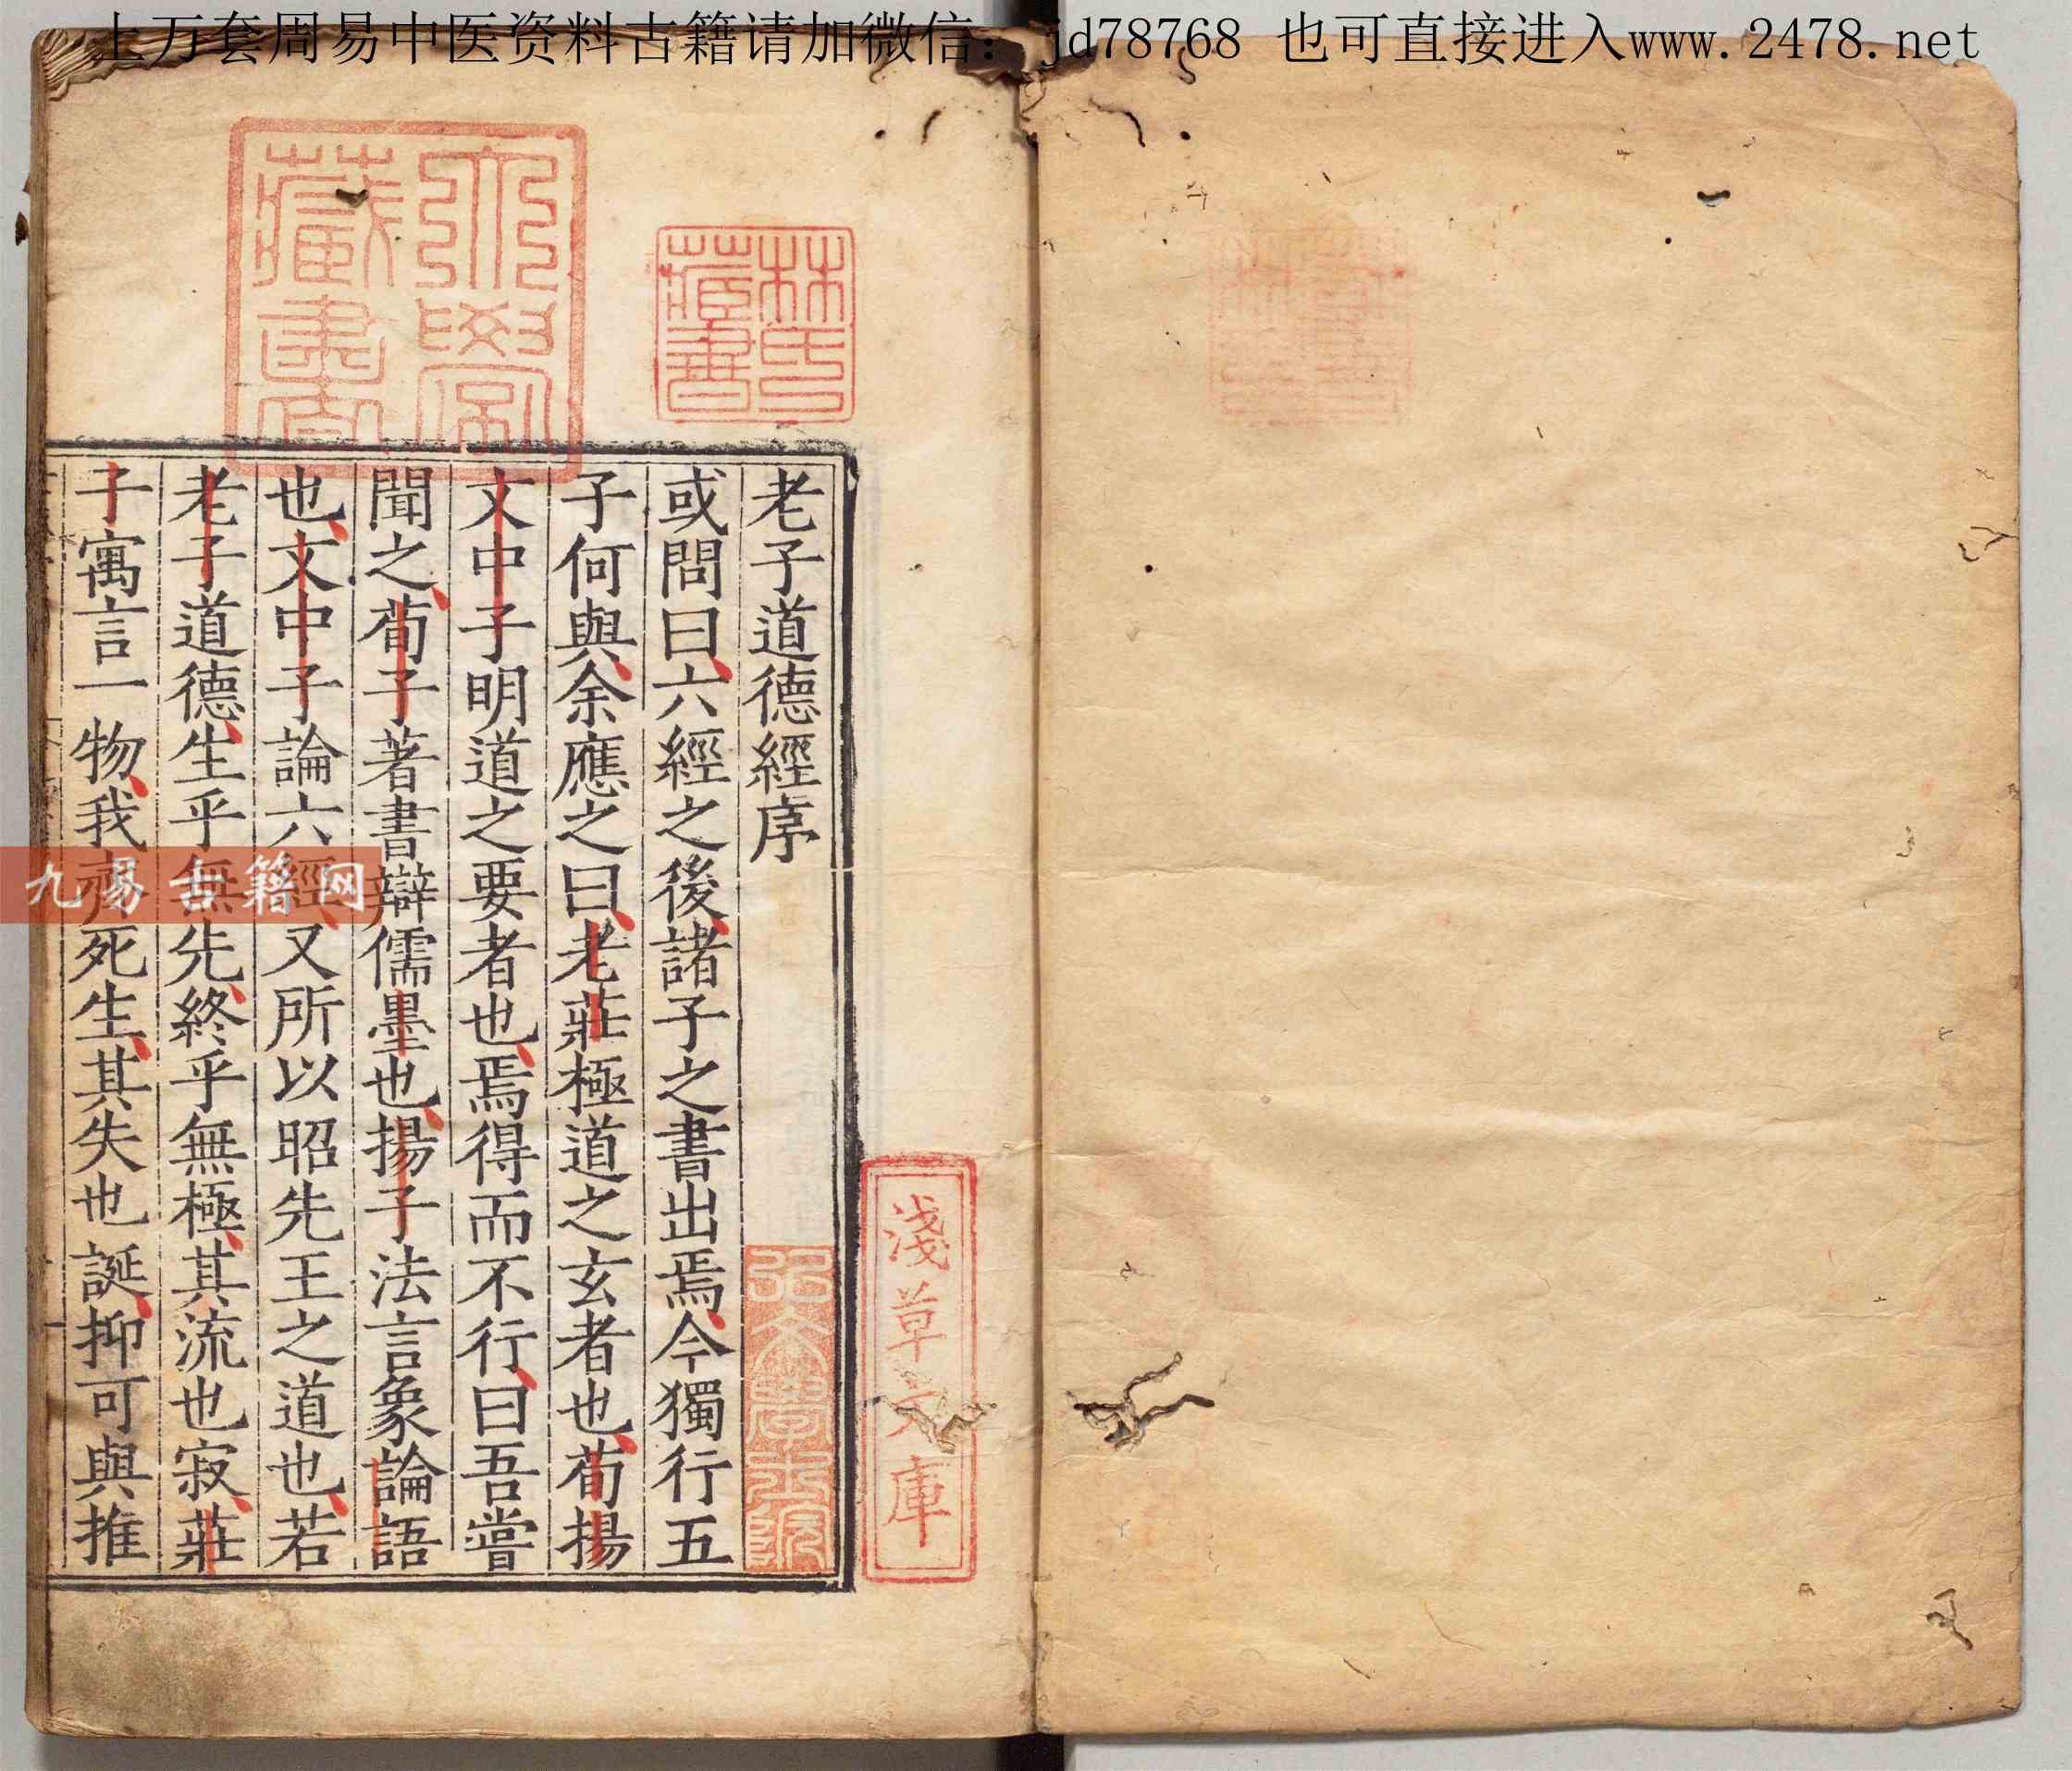 上万套周易中医资料古籍请加微信： jd78768 也可直接进入www.2478.net
老子道德經序
或問曰六經之後諸子之書出焉今獨行五
子何與余應之曰老莊極道之玄者也荀揚
文中子明道之要者也焉得而不行曰吾嘗
聞之荀子著書辯儒墨也揚子法言象論語
也文中子論六經又所以昭先王之道也若
老子道德生乎無先終乎無極其流也寂莊
子寓言一物我齊死生其失也誕抑可與推
林氏
藏書
淺草文庫
九易古籍网